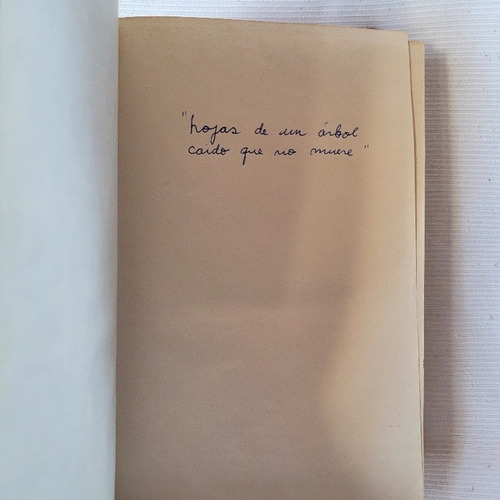 "hojas de un árbol
caido que no muere"